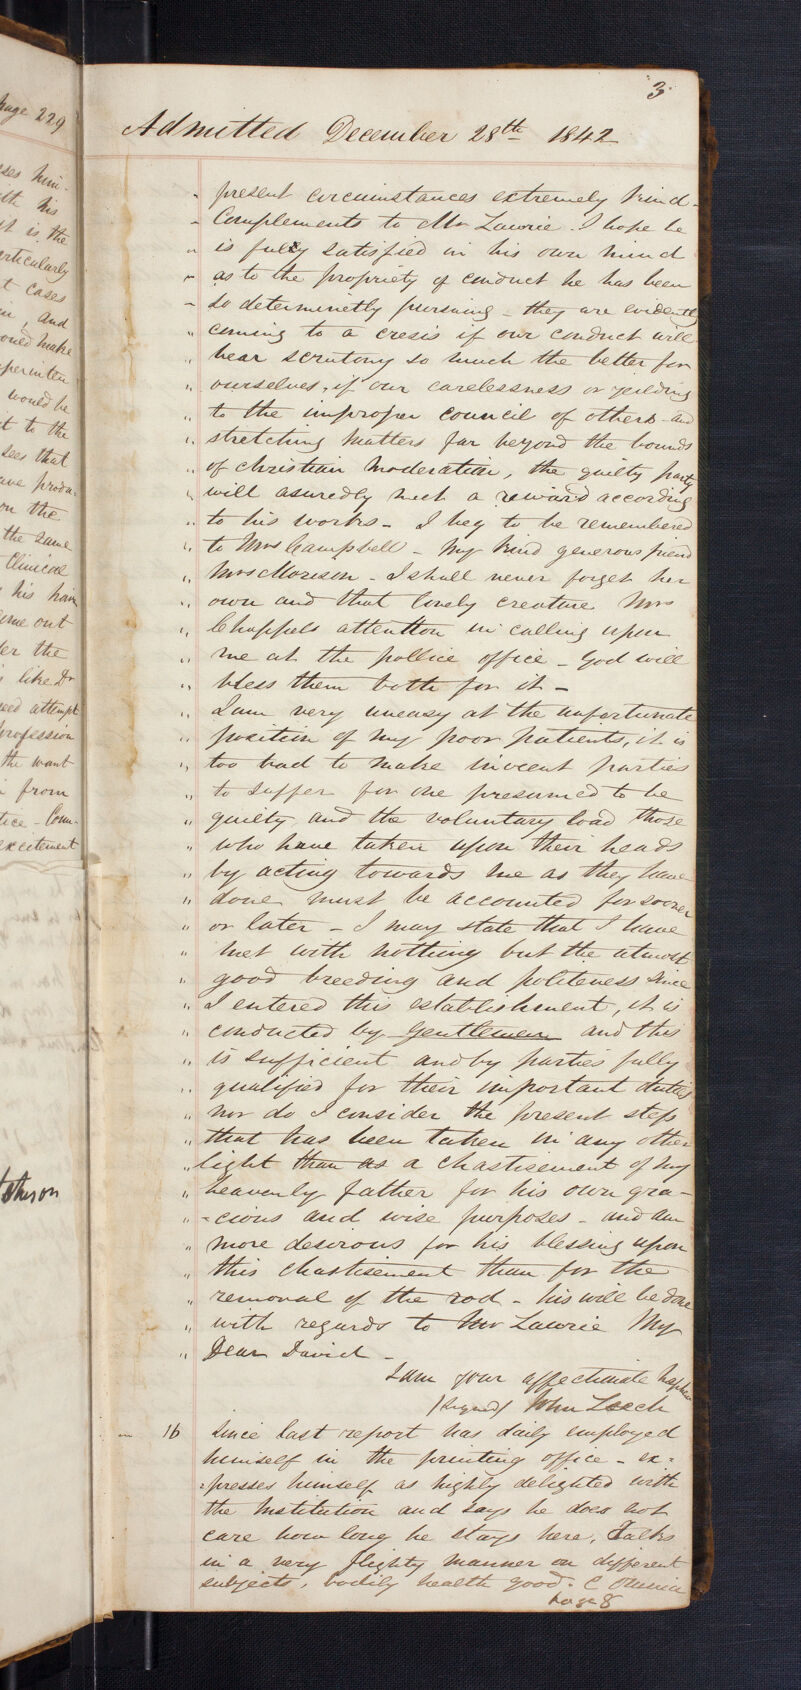 3
Admitted December 28th 1842
" present circumstances extremely kind -
" Complements to Mr Lawrie. I hope he
" is fully satisfied in his own mind
" as to the propriety of conduct he has been
" so determinetly pursuing - they are evidently
" coming to a cresis if our conduct will
" bear scrutony so much the better for
" ourselves, if our carelessness or yeilding
" to the improper council of others and
" stretching matters far beyond the bounds
" of christian moderation, the guilty party
" will asuredly meet a reward according
" to his works - I beg to be remembered
" to Mrs Campbell - My kind generous friend
" Mrs Morison - I shall never forget her
" own and that lovely creature Mrs
" Chappels attention in calling upon
" me at the pollice office - God will
" bless them both for it -
" I am very uneasy at the unfortunate
" position of my poor patients, it is
" too bad to make inocent parties
" to suffer for one presumed to be
" guilty and the voluntary load those
" who have taken upon their heads
" by acting towards me as they have
" done must be accounted for sooner
" or later - I may state that I have
" met with nothing but the utmost
" good breeding and politeness since
" I entered this establishment, it is
" conducted by Gentlemen and this
" is sufficient and by parties fully
" qualified for their important duties
" nor do I consider the present step
" that has been taken in any other
" light than as a chastisement of my
" heavenly father for his own gra-
" -cious and wise purposes - and am
" more desirous for his blessing upon
" this chastisement than for the
" removal of the rod - his will be done
" with regards to Mr Lawrie My
" Dear David -
I am your affectinate nephew
(Signed) John Leech
16 Since last report has daily employed
himself in the printing office - ex=
=presses himself as highly delighted with
the Institution and says he does not
care how long he stays here. Talks
in a very flighty manner on different
subjects, bodily health good. C
page 8
page 229
ses him-
ith his
it is the
articularly
t cases
and
would make
would be
t to the
sees that
on the
the same
Clinical
his hair
ome out
er the
like Dr
attempt
profession
the want
from
tice - Com-
excitement